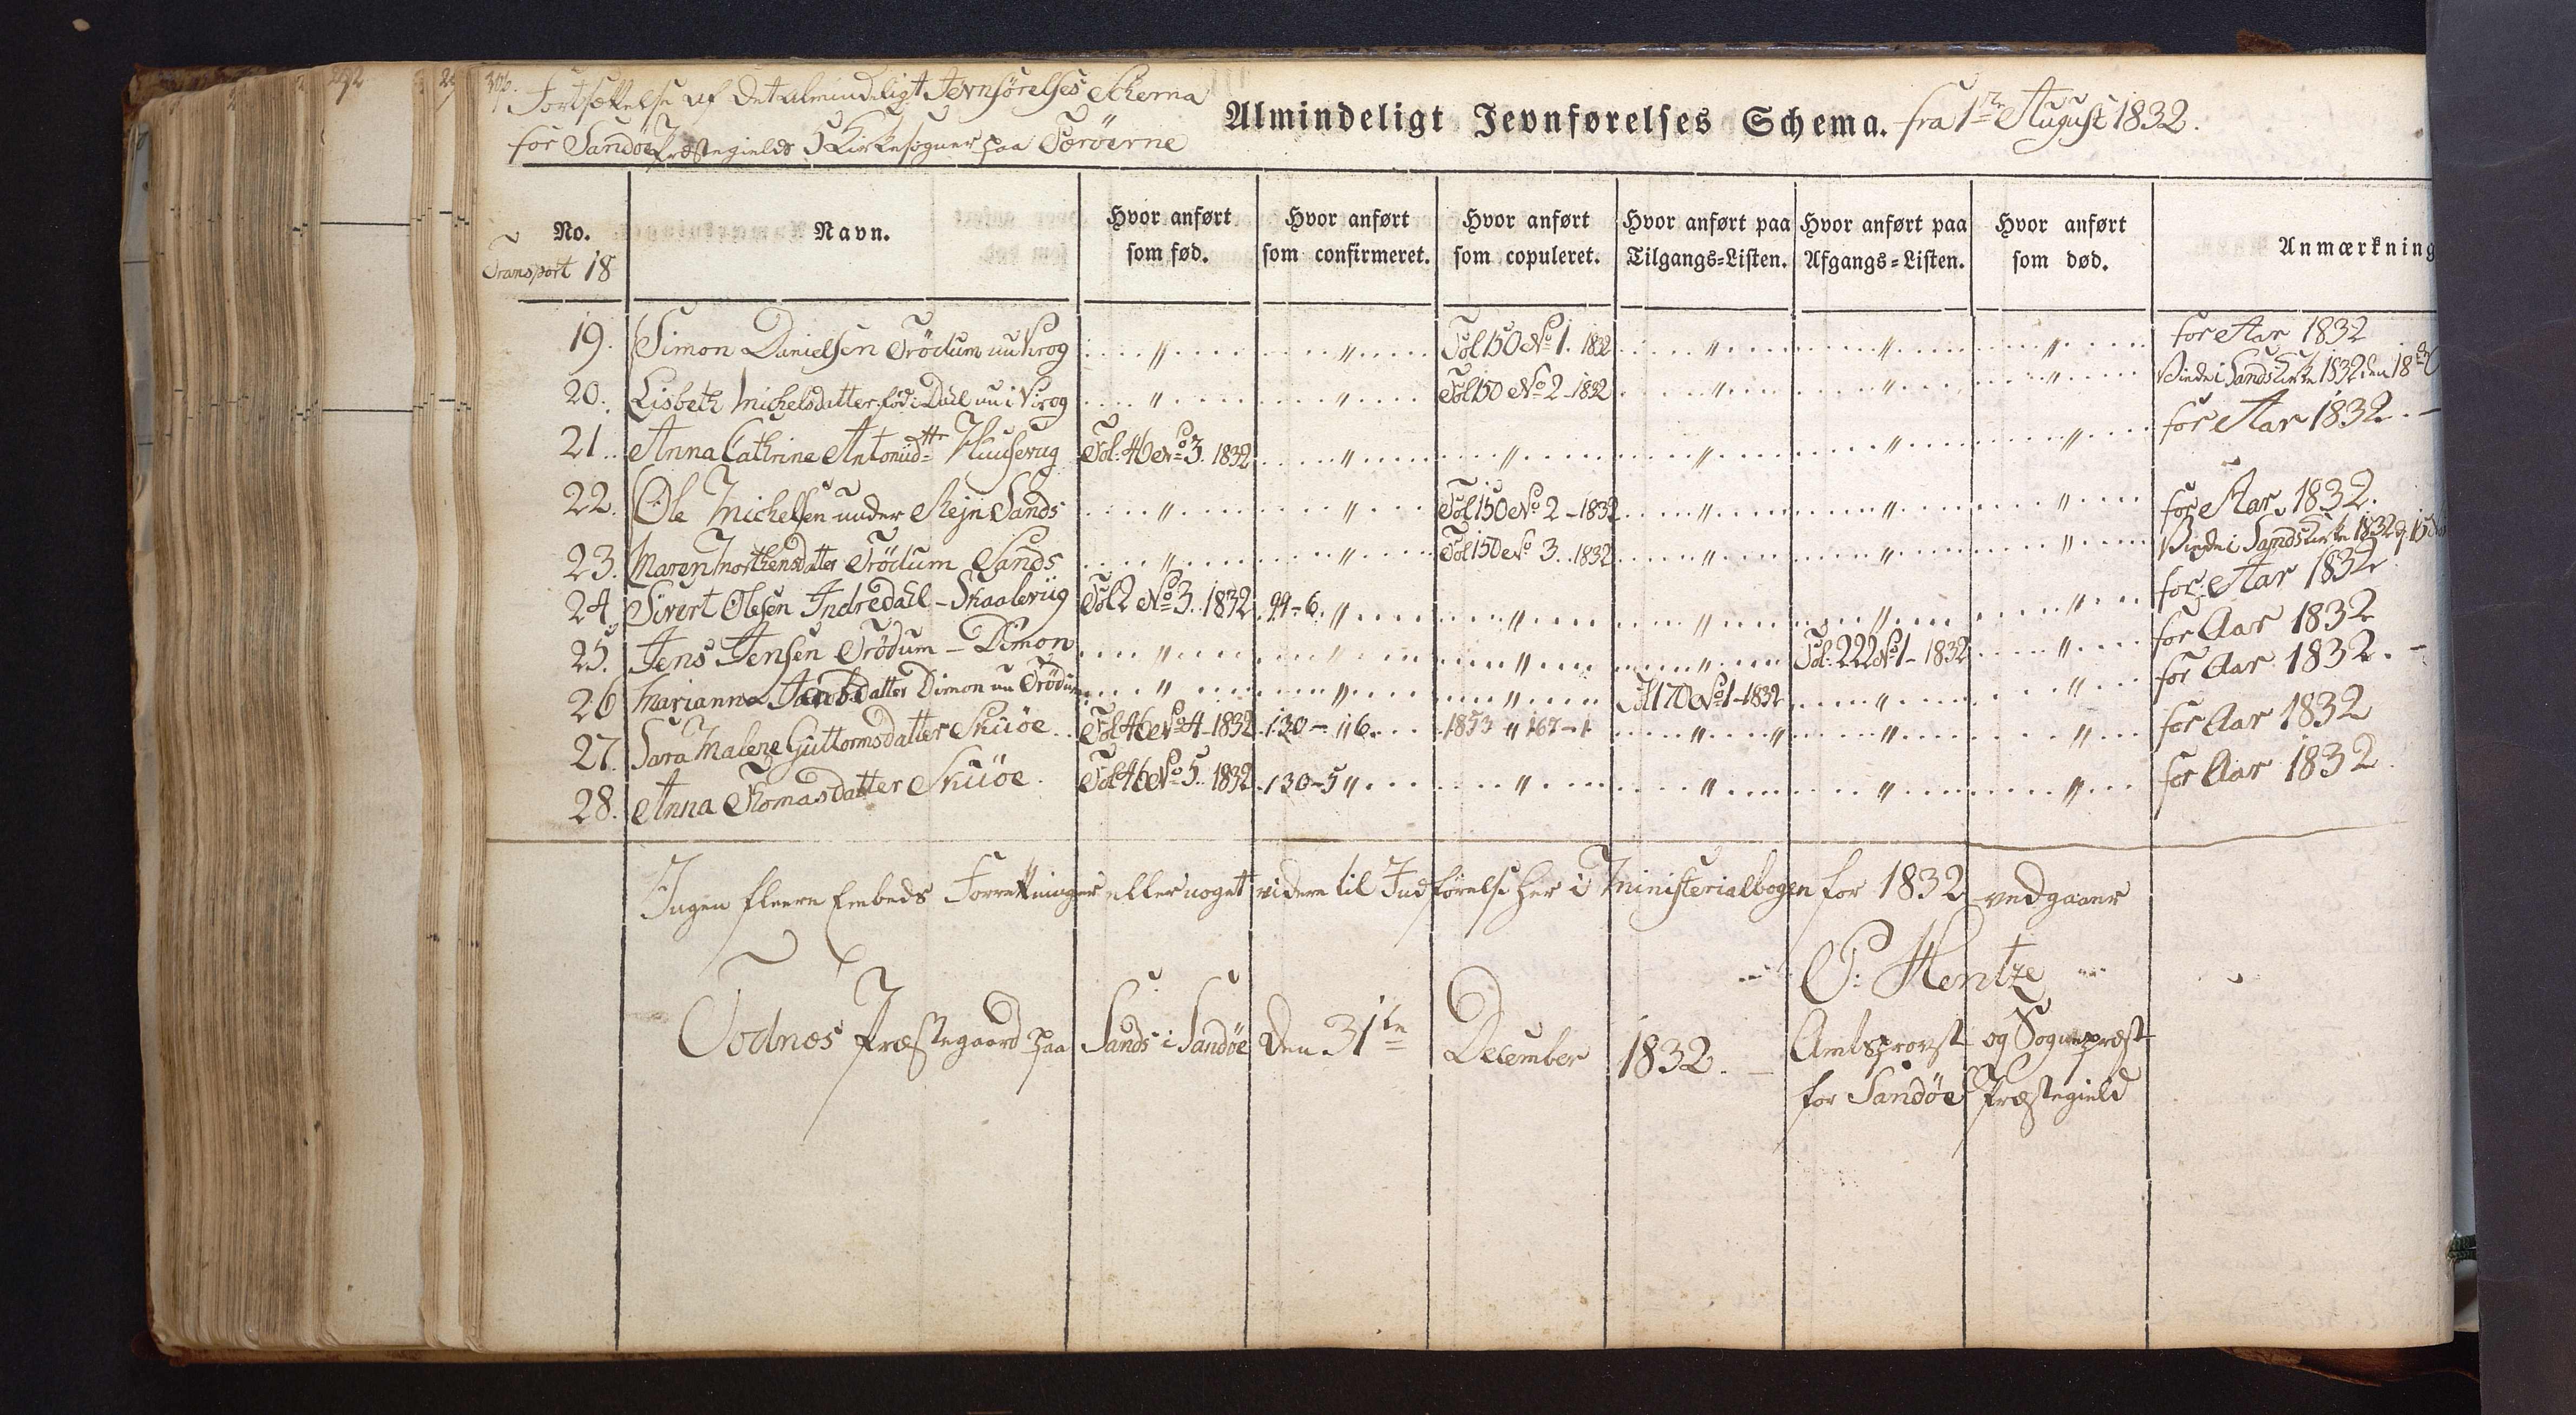 Fortsættelse af det almindeligt Jevnførelses Schema
for Sandøe Præstegields 5 Kirkesogner paa Færöerne
Almindeligt Jevnførelses Schema. fra 1ste August 1832.
No. Navn. Hvor anført som fød. Hvor anført som confirmeret. Hvor anført som copuleret. Hvor anført paa Tilgangs-Listen. Hvor anført paa Afgangs-Listen. Hvor anført som død. Anmærkning
Transport 18
19. Simon Danielsen Trödum nu Krog " " Fol 150 No 1. 1832 " " " for Aar 1832
20. Lisbeth Michelsdatter fød i Dahl nu i Krog " " Fol 150 No 2 - 1832 " " " Viede i Sands Kirke 1832 den 18de
21. Anna Cathrine Antoniid:ttr Huusevug Fol: 46 No 3. 1832 " " " " " for Aar 1832. -
22. Ole Michelsen under Rejn Sands " " Fol 150 No 2 - 1832 " " " for Aar 1832.
23. Maren Morthensdatter Trödum Sands " " Fol 150 No 3. 1832 " " " Viede i Sands Kirke 1832 d. 15
24. Sivert Olesen Indredahl - Skaalevug Fol 2 No 3. 1832 99-6. " " " " " for Aar 1832
25. Jens Jensen Trödum - Dimon " " " " Fol: 222 No 1 - 1832 " for Aar 1832
26 Marianna Jacobsdatter Dimon nu Trödum " " " Fol 170 No 1 - 1832 " " for Aar 1832. -
27. Sara Malene Guttormsdatter Skuöe. Fol 46 No 4 - 1832 130 - 6. 1853 " 167 - 1 " " " for Aar 1832
28. Anna Thomasdatter Skuöe. Fol 46 No 5. 1832 130-5 " " " " " for Aar 1832.
Ingen fleere Embeds Forretninger eller noget videre til Indførelse her i Ministerialbogen for 1832 vedgaaer
P: Hentze
Todnæs Præstegaard paa Sands i Sandöe den 31te December 1832. - Amtsprovst og Sognepræst
for Sandöe Præstegield